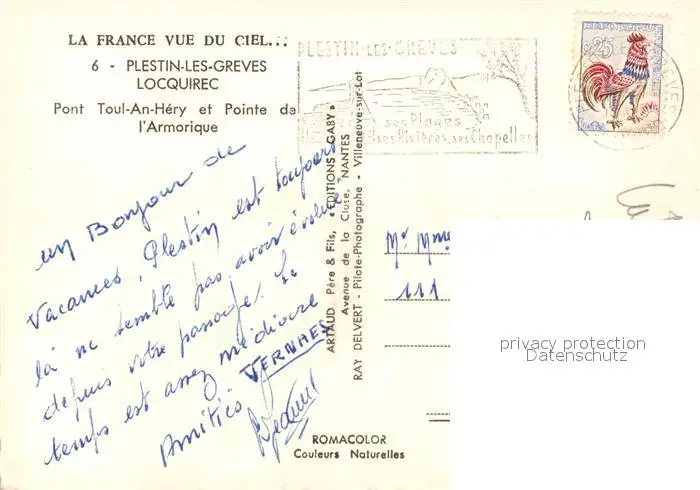 LA FRANCE VUE DU CIEL...
6 - PLESTIN-LES-GREVES
LOCQUIREC
Pont Toul-An-Héry et Pointe de
l'Armorique
PLESTIN-LES-GREVES
ses Plages
ses Rivières, ses Chapelles
0,25
un Bonjour de
Vacances, Plestin est toujours
là ne semble pas avoir évolué
depuis votre passage. Le
temps est assez médiocre
Amitiés VERNHES
ARTAUD Père & Fils, "EDITIONS GABY"
Avenue de la Close, NANTES
RAY DELVERT - Pilote-Photographe - Villeneuve-sur-Lot
Mr
111
privacy protection
Datenschutz
ROMACOLOR
Couleurs Naturelles